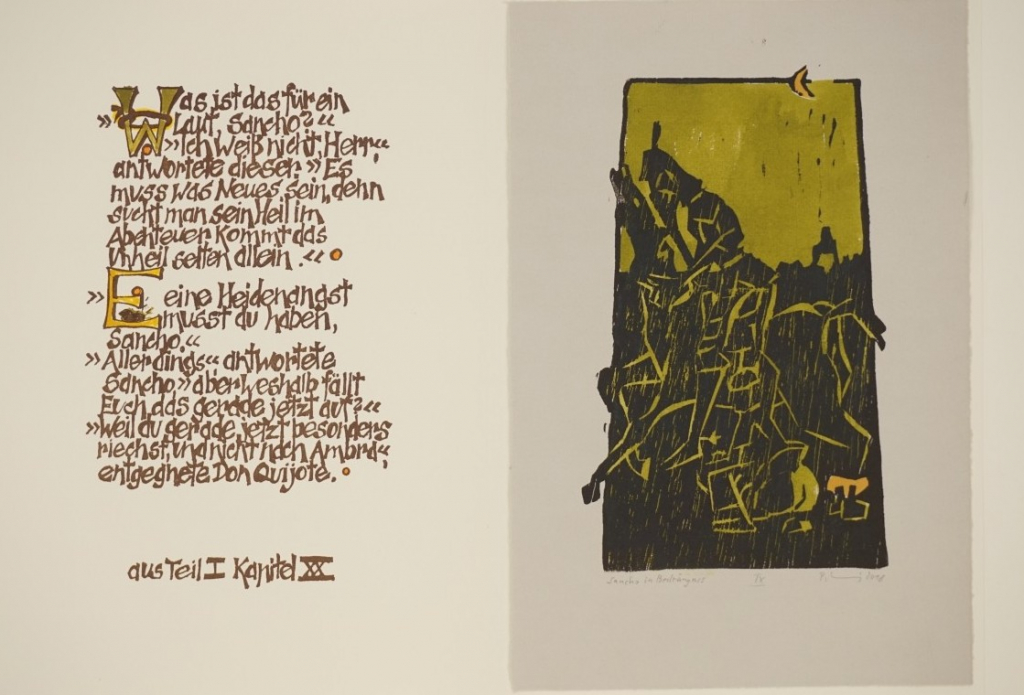 Was ist das für ein
» Laut, Sancho?“
» Ich weiß nicht, Herr“,
antwortete dieser. » Es
muss was Neues sein, denn
sucht man sein Heil im
Abenteuer kommt das
Unheil selten allein.“
» Eine Heidenangst
musst du haben,
Sancho.“
» Allerdings“ antwortete
Sancho » aber weshalb fällt
Euch das gerade jetzt auf?“
» Weil du gerade jetzt besonders
riechst, und nicht nach Ambra“,
entgegnete Don Quijote.
aus Teil I Kapitel XX
Sancho in